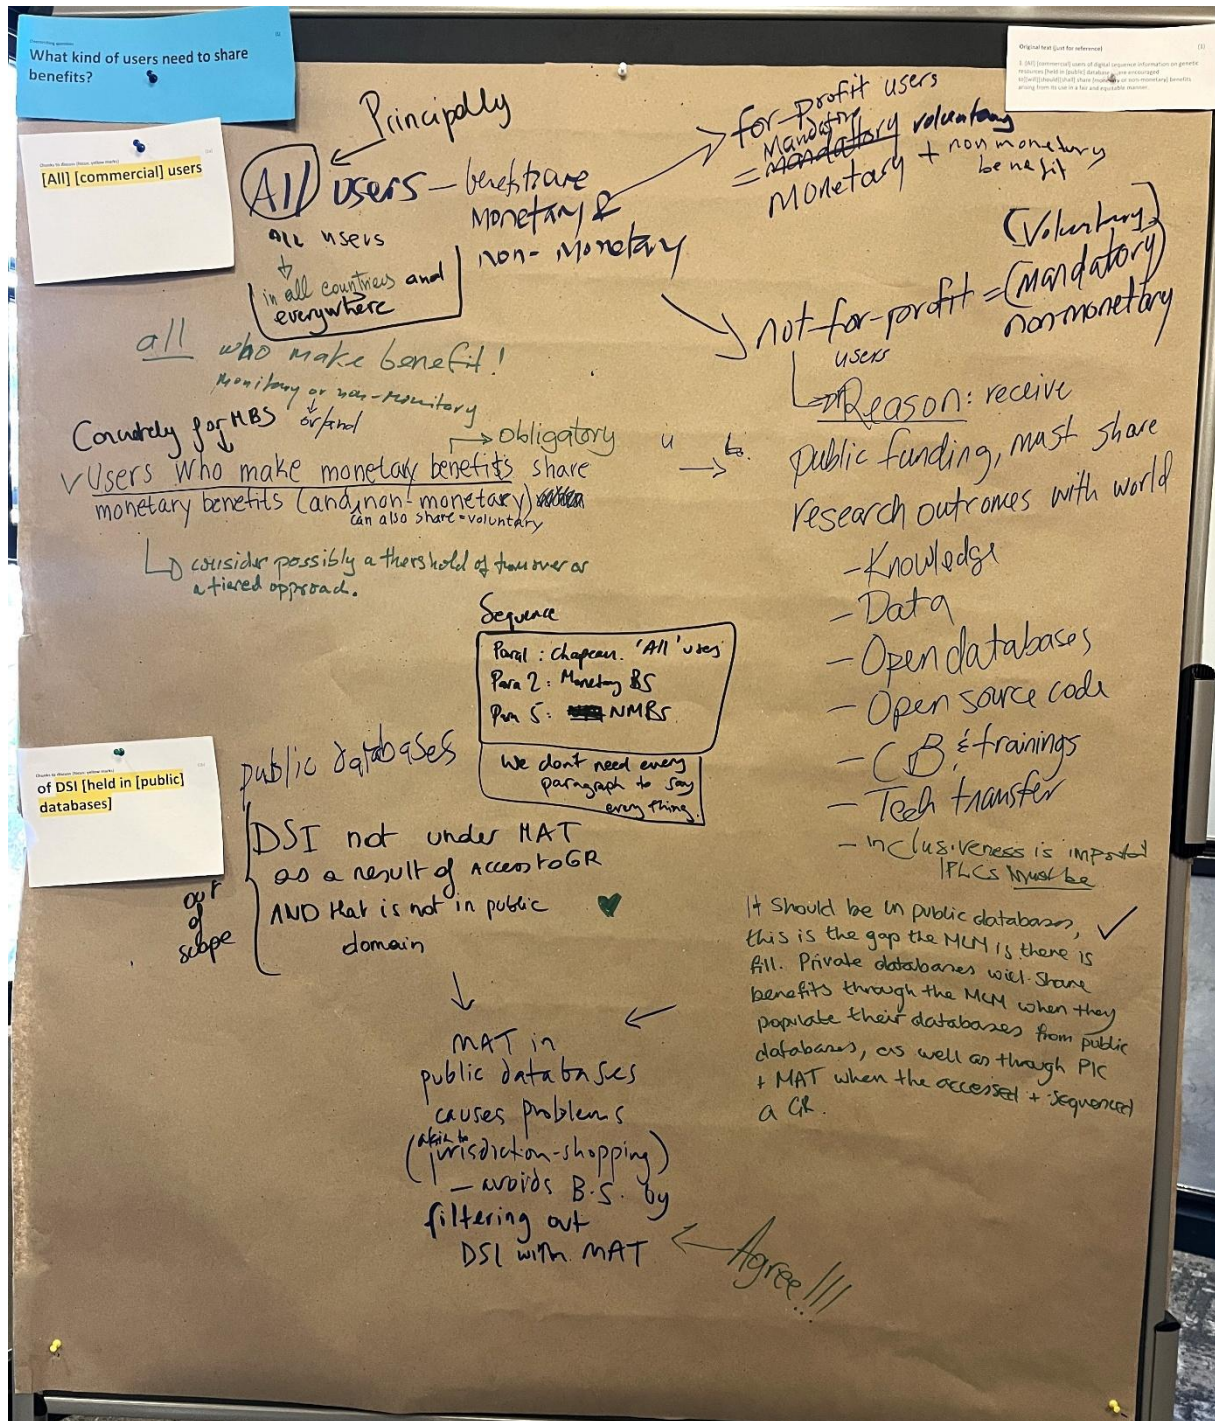 What kind of users need to share
benefits?
Original text (just for reference)
1. [All] [commercial] users of digital sequence information on genetic
resources [held in [public] databases
benefits
arising from its use in a fair and equitable manner.
[All] [commercial] users
Principally
All users – benefits are
monetary &
non-monetary
All users
in all countries and
everywhere
for-profit users
Mandatory
= mandatory voluntary
monetary + non monetary
benefit
not-for-profit =
users
(Voluntary)
(mandatory)
non-monetary
Reason: receive
public funding, must share
research outcomes with world
- Knowledge
- Data
- Open databases
- Open source code
- CB & trainings
- Tech transfer
- inclusiveness is important
IPLCs must be
all who make benefit!
monitary or non-monitary
or/and
Concretely for MBS
obligatory
Users who make monetary benefits share
monetary benefits (and non-monetary)
can also share = voluntary
consider possibly a thershold of turnover or
a tiered approach.
Sequence
Para 1: Chapeau. 'All' users
Para 2: Monetary BS
Para 5: NMBS
We dont need every
paragraph to say
everything.
of DSI [held in [public]
databases]
public databases
out
of
scope
DSI not under MAT
as a result of access to GR
AND that is not in public
domain
MAT in
public databases
causes problems
(akin to
jurisdiction-shopping)
– avoids B.S. by
filtering out
DSI with MAT
Agree!!!
It should be in public databases,
this is the gap the MLM is there is
fill. Private databases will share
benefits through the MLM when they
populate their databases from public
databases, as well as through PIC
+ MAT when the accessed + sequenced
a GR.